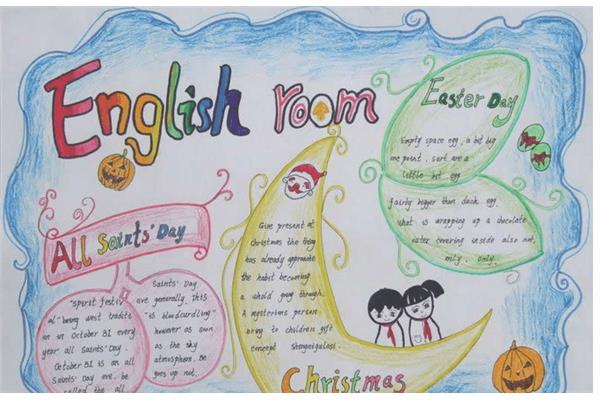 English room
Easter Day
Empty space egg, a bit big
me point, sort are a
little bit egg
fairly bigger than duck egg,
what is wrapping up a chocolate
outer covering inside also not
only, only.
All Saints' Day
"spirit festiv
al" being west traditi
on in October 31 every
year all Saints' Day.
October 31 is on all
Saints' Day eve. be
called the all
Saints' Day
eve generally. This
"is bloodcurdling"
however as own
as the sky
atmosphere. Be
goes up not.
Give present at
Christmas the thing
has already approximate
the habit becoming
a whold gang through.
A mysterious person
bring to children gift
concept Shenanigulasi.
Christmas